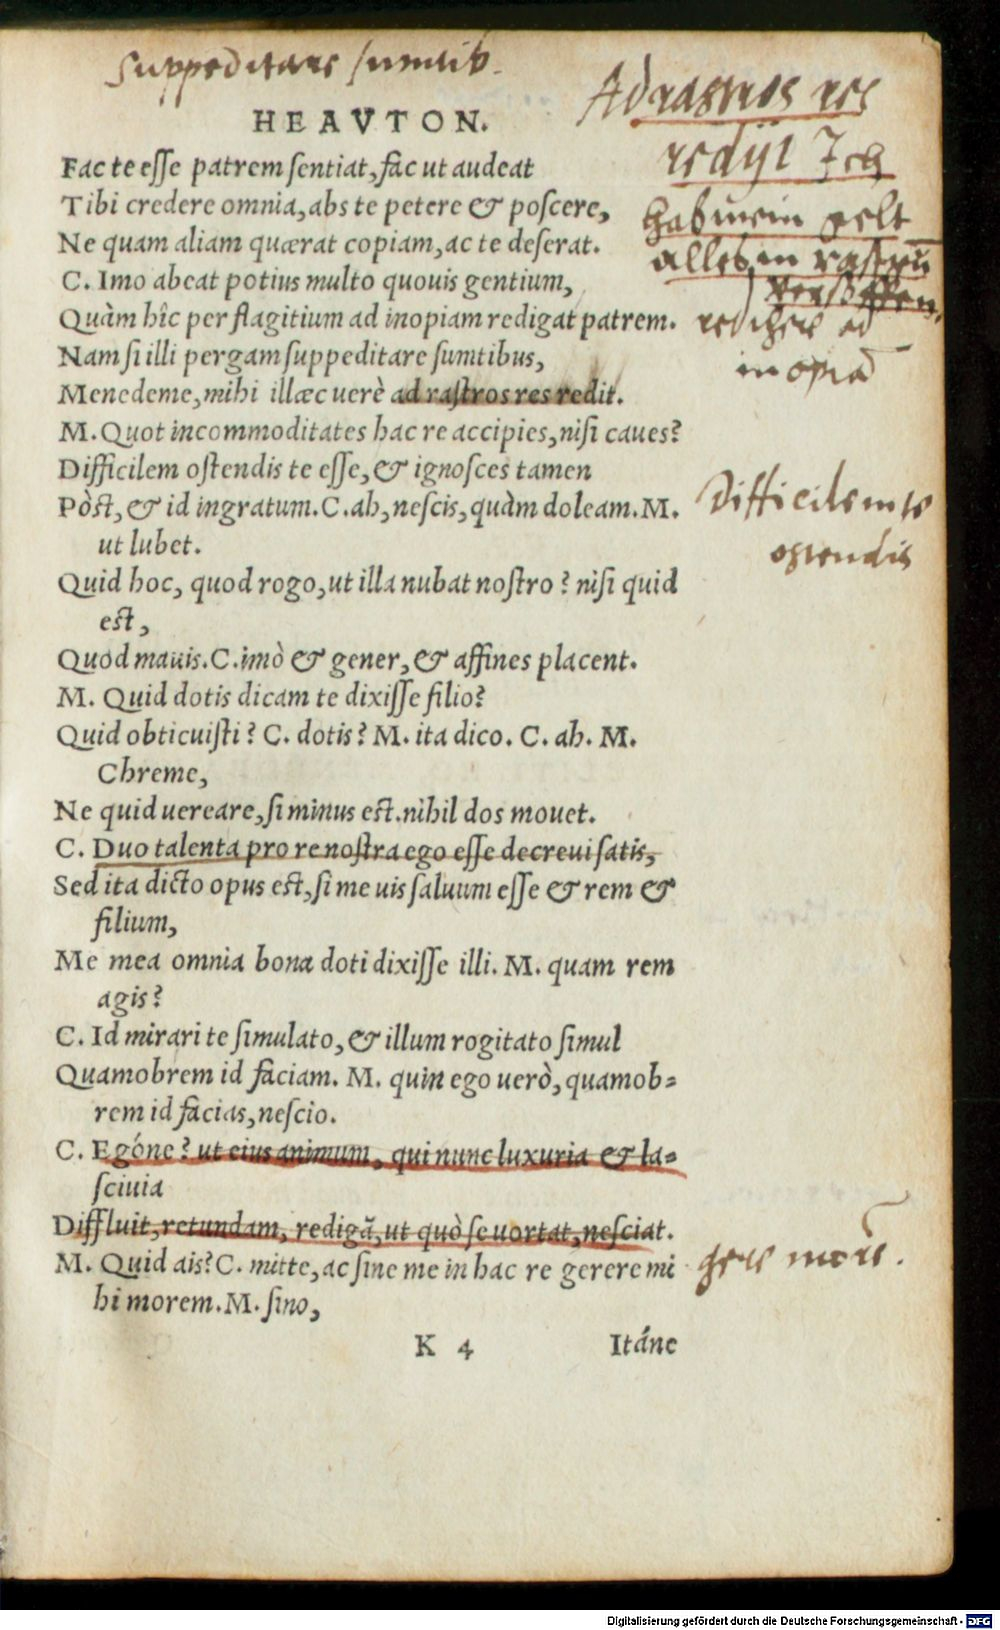 Suppeditare sumtib.
HEAVTON.
Ad rastros res
redijt Ich
hab mein gelt
alles in rastrū
versoffen.
redigere ad
inopiā
Fac te eſſe patrem ſentiat, fac ut audeat
Tibi credere omnia, abs te petere & poſcere,
Ne quam aliam quærat copiam, ac te deſerat.
C. Imo abeat potius multo quouis gentium,
Quàm hîc per flagitium ad inopiam redigat patrem.
Nam ſi illi pergam ſuppeditare ſumtibus,
Menedeme, mihi illæc uerè ad raſtros res redit.
M. Quot incommoditates hac re accipies, niſi caues?
Difficilem oſtendis te eſſe, & ignoſces tamen
Pòſt, & id ingratum. C. ah, neſcis, quàm doleam. M.
ut lubet.
Difficilem te
ostendis
Quid hoc, quod rogo, ut illa nubat noſtro? niſi quid
eſt,
Quod mauis. C. imò & gener, & affines placent.
M. Quid dotis dicam te dixiſſe filio?
Quid obticuiſti? C. dotis? M. ita dico. C. ah. M.
Chreme,
Ne quid uereare, ſi minus eſt. nihil dos mouet.
C. Duo talenta pro re noſtra ego eſſe decreui ſatis,
Sed ita dicto opus eſt, ſi me uis ſaluum eſſe & rem &
filium,
Me mea omnia bona doti dixiſſe illi. M. quam rem
agis?
C. Id mirari te ſimulato, & illum rogitato ſimul
Quamobrem id faciam. M. quin ego uerò, quamob-
rem id facias, neſcio.
C. Egóne? ut eius animum, qui nunc luxuria & la-
ſciuia
Diffluit, retundam, redigā, ut quò ſe uortat, neſciat.
M. Quid ais? C. mitte, ac ſine me in hac re gerere mi
hi morem. M. ſino,
gere morē.
K 4 Itáne
Digitalisierung gefördert durch die Deutsche Forschungsgemeinschaft - DFG